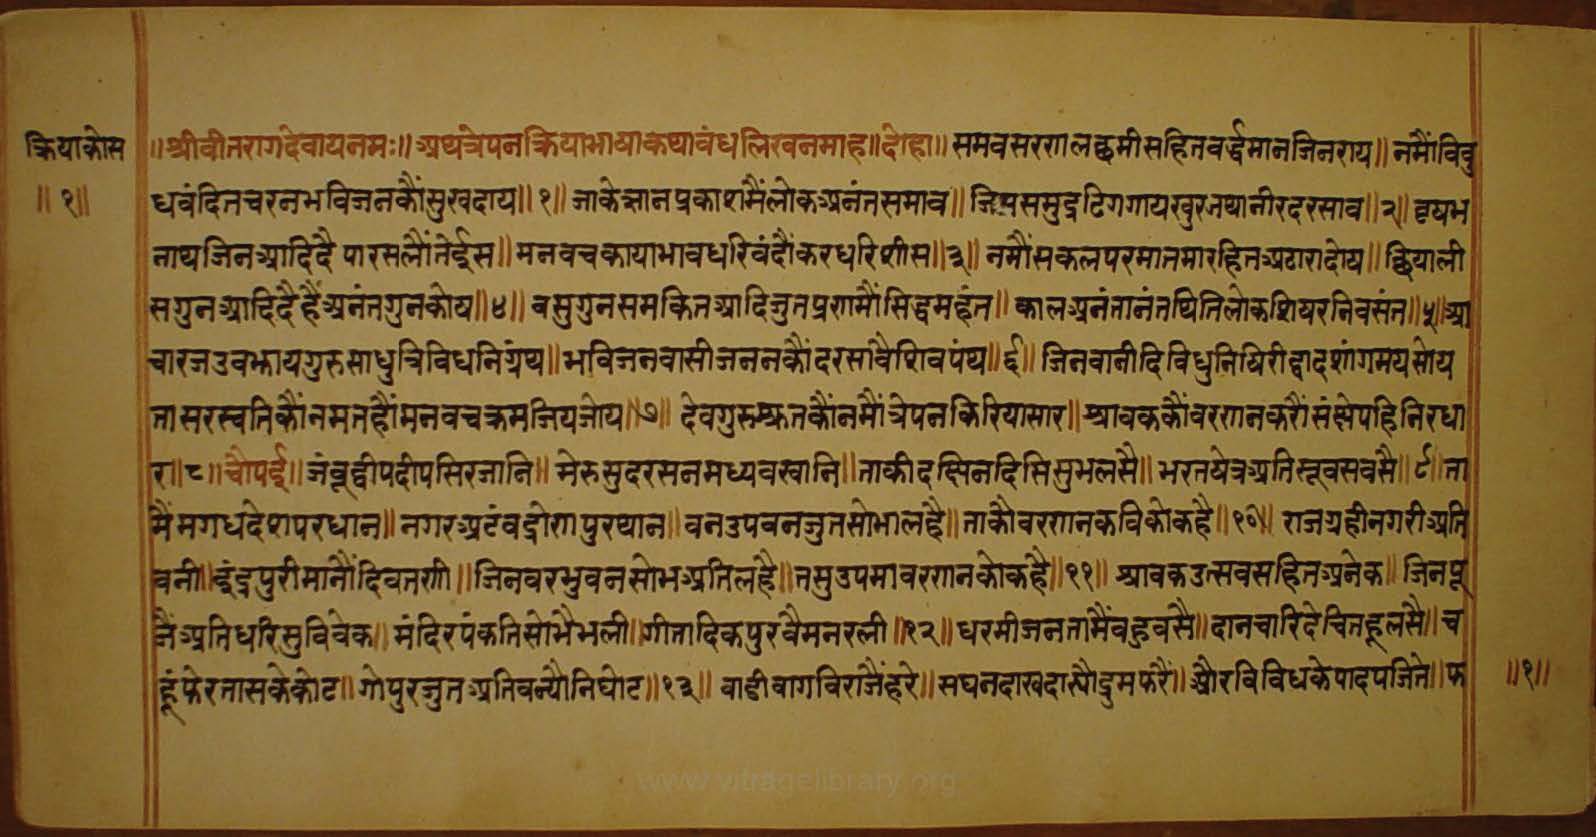 क्रियाकोस
॥१॥
॥श्रीवीतरागदेवायनमः॥ अथत्रेपनक्रियाभाषाकथाबंधलिखतमाह॥दोहा॥ समवसरणलछमीसहितवर्द्धमानजिनराय॥ नमौंविवु
धवंदितचरनभविजनकौंसुखदाय॥१॥ जाकेज्ञानप्रकाशमैंलोकअनंतसमाव॥ जिमसमुद्रढिगगायखुरजथानीरदरसाव॥२॥ वृषभ
नाथजिनआदिदै पारसलौंतेईस॥ मनवचकायाभावधरिवंदौंकरधरिशीस॥३॥ नमौंसकलपरमातमारहितअठारादोय॥ छियाली
सगुनआदिदैहैंअनंतगुनकोय॥४॥ वसुगुनसमकितआदिजुतप्रणमौंसिद्धमहंत॥ कालअनंतानंतथितिलोकशिषरनिवसंत॥५॥आ
चारजउवझायगुरुसाधुत्रिविधनिग्रंथ॥ भविजनवासीजननकौंदरसावैशिवपंथ॥६॥ जिनवानीदिविधुनिषिरीद्वादशांगमयसोय
तासरस्वतिकौंनमतहौंमनवचक्रमजियजोय॥७॥ देवगुरुश्रुतकौंनमौंत्रेपनकिरियासार॥ श्रावककौंवरणनकरौंसंक्षेपहिनिरधा
र॥८॥चौपई॥ जंबूद्वीपदीपसिरजानि॥ मेरुसुदरसनमध्यवखानि॥ ताकीदक्षिनदिसिसुभलसै॥ भरतषेत्रअतिस्तूवसवसै॥९॥ ता
मैंमगधदेशपरधान॥ नगरअटंवद्रोणपुरथान॥ वनउपवनजुतसोभालहै॥ ताकौवरणनकविकोकहै॥१०॥ राजग्रहीनगरीअति
वनी॥ इंद्रपुरीमानौंदिवतणी॥ जिनवरभुवनसोभअतिलहै॥ तसुउपमावरणनकोकहै॥११॥ श्रावकउत्सवसहितअनेक॥ जिनपू
जैंअतिधरिसुविवेक॥ मंदिरपंकतिसोभैभली॥ गीतादिकपुरवैमनरली॥१२॥ धरमीजनतामैंवहुवसै॥ दानचारिदेचितहूलसै॥ च
हूंफेरतासकेकोट॥ गोपुरजुतअतिवन्यौनिघोट॥१३॥ वाडीवागविराजैंहरे॥ सघनदाखदाख्यौद्रुमफरैं॥ औरविविधकेपादपजिते॥ फ
॥१॥
www.vitragelibrary.org